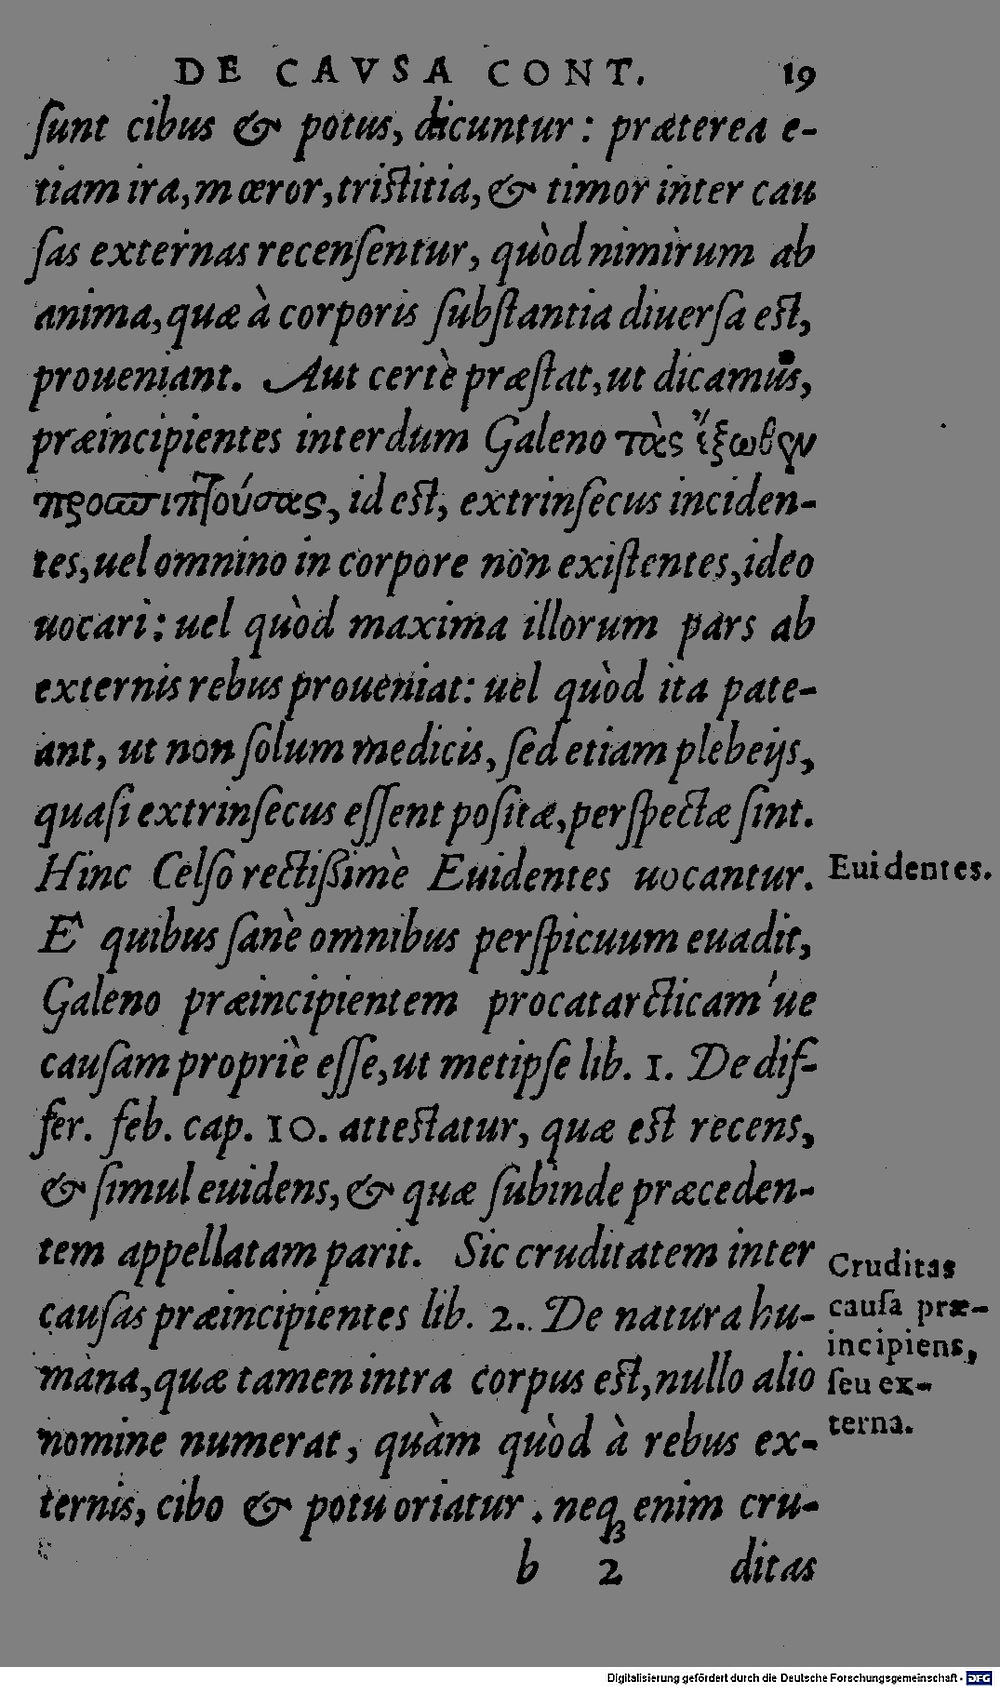 DE CAVSA CONT. 19
ſunt cibus & potus, dicuntur : præterea e-
tiam ira, mœror, triſtitia, & timor inter cau
ſas externas recenſentur, quòd nimirum ab
anima, quæ à corporis ſubſtantia diuerſa eſt,
proueniant. Aut certè præſtat, ut dicamus,
præincipientes interdum Galeno τὰς ἔξωθεν
προσπιπτούσας, id eſt, extrinſecus inciden-
tes, uel omnino in corpore non exiſtentes, ideo
uocari : uel quòd maxima illorum pars ab
externis rebus proueniat: uel quòd ita pate-
ant, ut non ſolum medicis, ſed etiam plebeijs,
quaſi extrinſecus eſſent poſitæ, perſpectæ ſint.
Hinc Celſo rectiſsimè Euidentes uocantur.
Euidentes.
E' quibus ſanè omnibus perſpicuum euadit,
Galeno præincipientem procatarcticam'ue
cauſam propriè eſſe, ut metipſe lib. 1. De dif-
fer. feb. cap. 10. atteſtatur, quæ eſt recens,
& ſimul euidens, & quæ ſubinde præceden-
tem appellatam parit. Sic cruditatem inter
cauſas præincipientes lib. 2. De natura hu-
mana, quæ tamen intra corpus eſt, nullo alio
nomine numerat, quàm quòd à rebus ex-
ternis, cibo & potu oriatur . neq; enim cru-
Cruditas
cauſa præ-
incipiens,
ſeu ex-
terna.
b 2 ditas
Digitalisierung gefördert durch die Deutsche Forschungsgemeinschaft - DFG